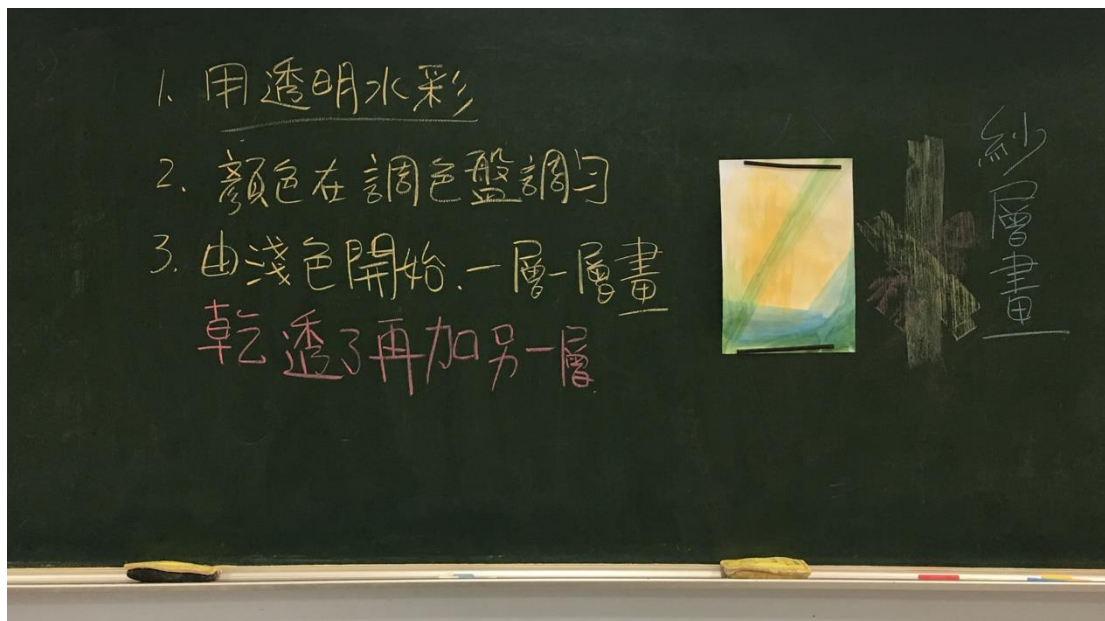 1. 用透明水彩
2. 顏色在調色盤調勻
3. 由淺色開始.一層一層畫
乾透了再加另一層
紗層畫